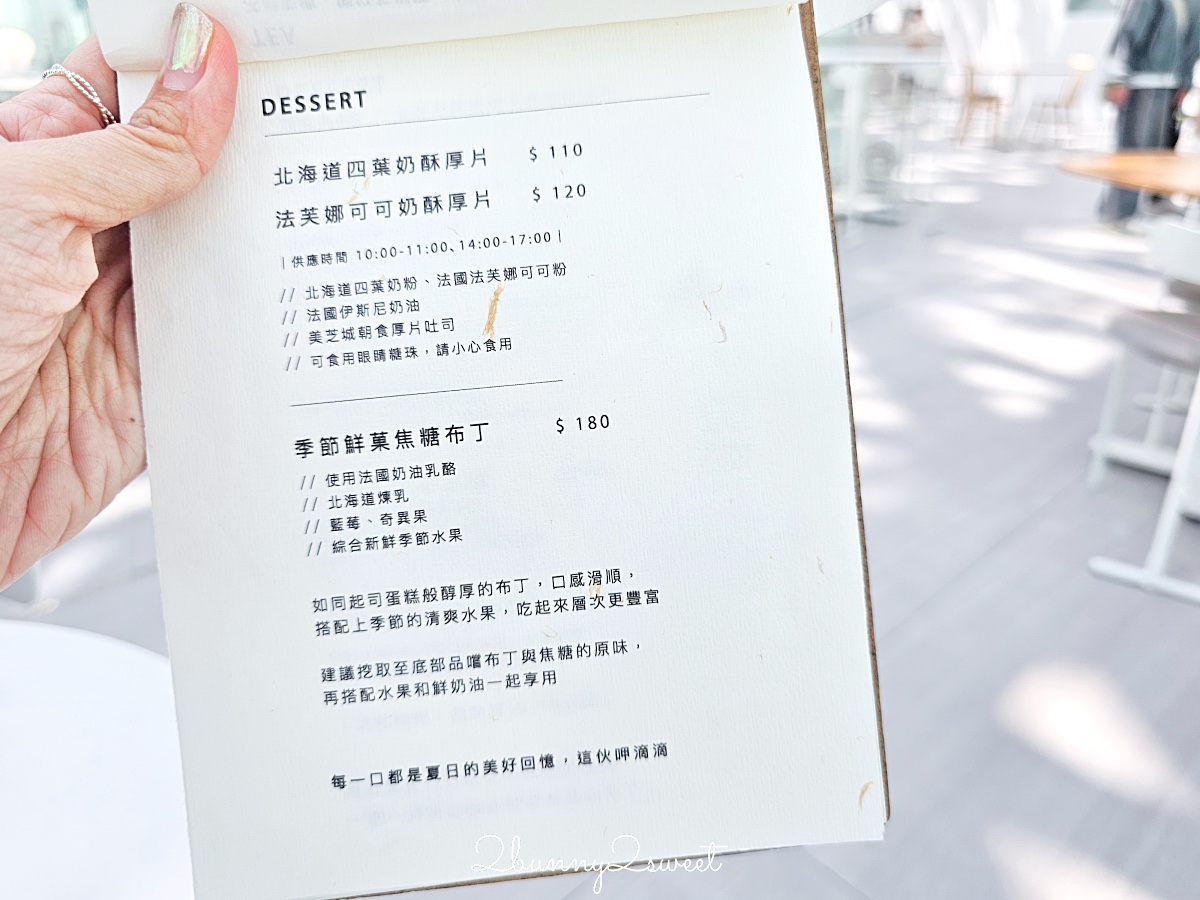 DESSERT
北海道四葉奶酥厚片 $ 110
法芙娜可可奶酥厚片 $ 120
| 供應時間 10:00-11:00、14:00-17:00 |
// 北海道四葉奶粉、法國法芙娜可可粉
// 法國伊斯尼奶油
// 美芝城朝食厚片吐司
// 可食用眼睛糖珠，請小心食用
季節鮮菓焦糖布丁 $ 180
// 使用法國奶油乳酪
// 北海道煉乳
// 藍莓、奇異果
// 綜合新鮮季節水果
如同起司蛋糕般醇厚的布丁，口感滑順，
搭配上季節的清爽水果，吃起來層次更豐富
建議挖取至底部品嚐布丁與焦糖的原味，
再搭配水果和鮮奶油一起享用
每一口都是夏日的美好回憶，這伙呷滴滴
2bunny2sweet